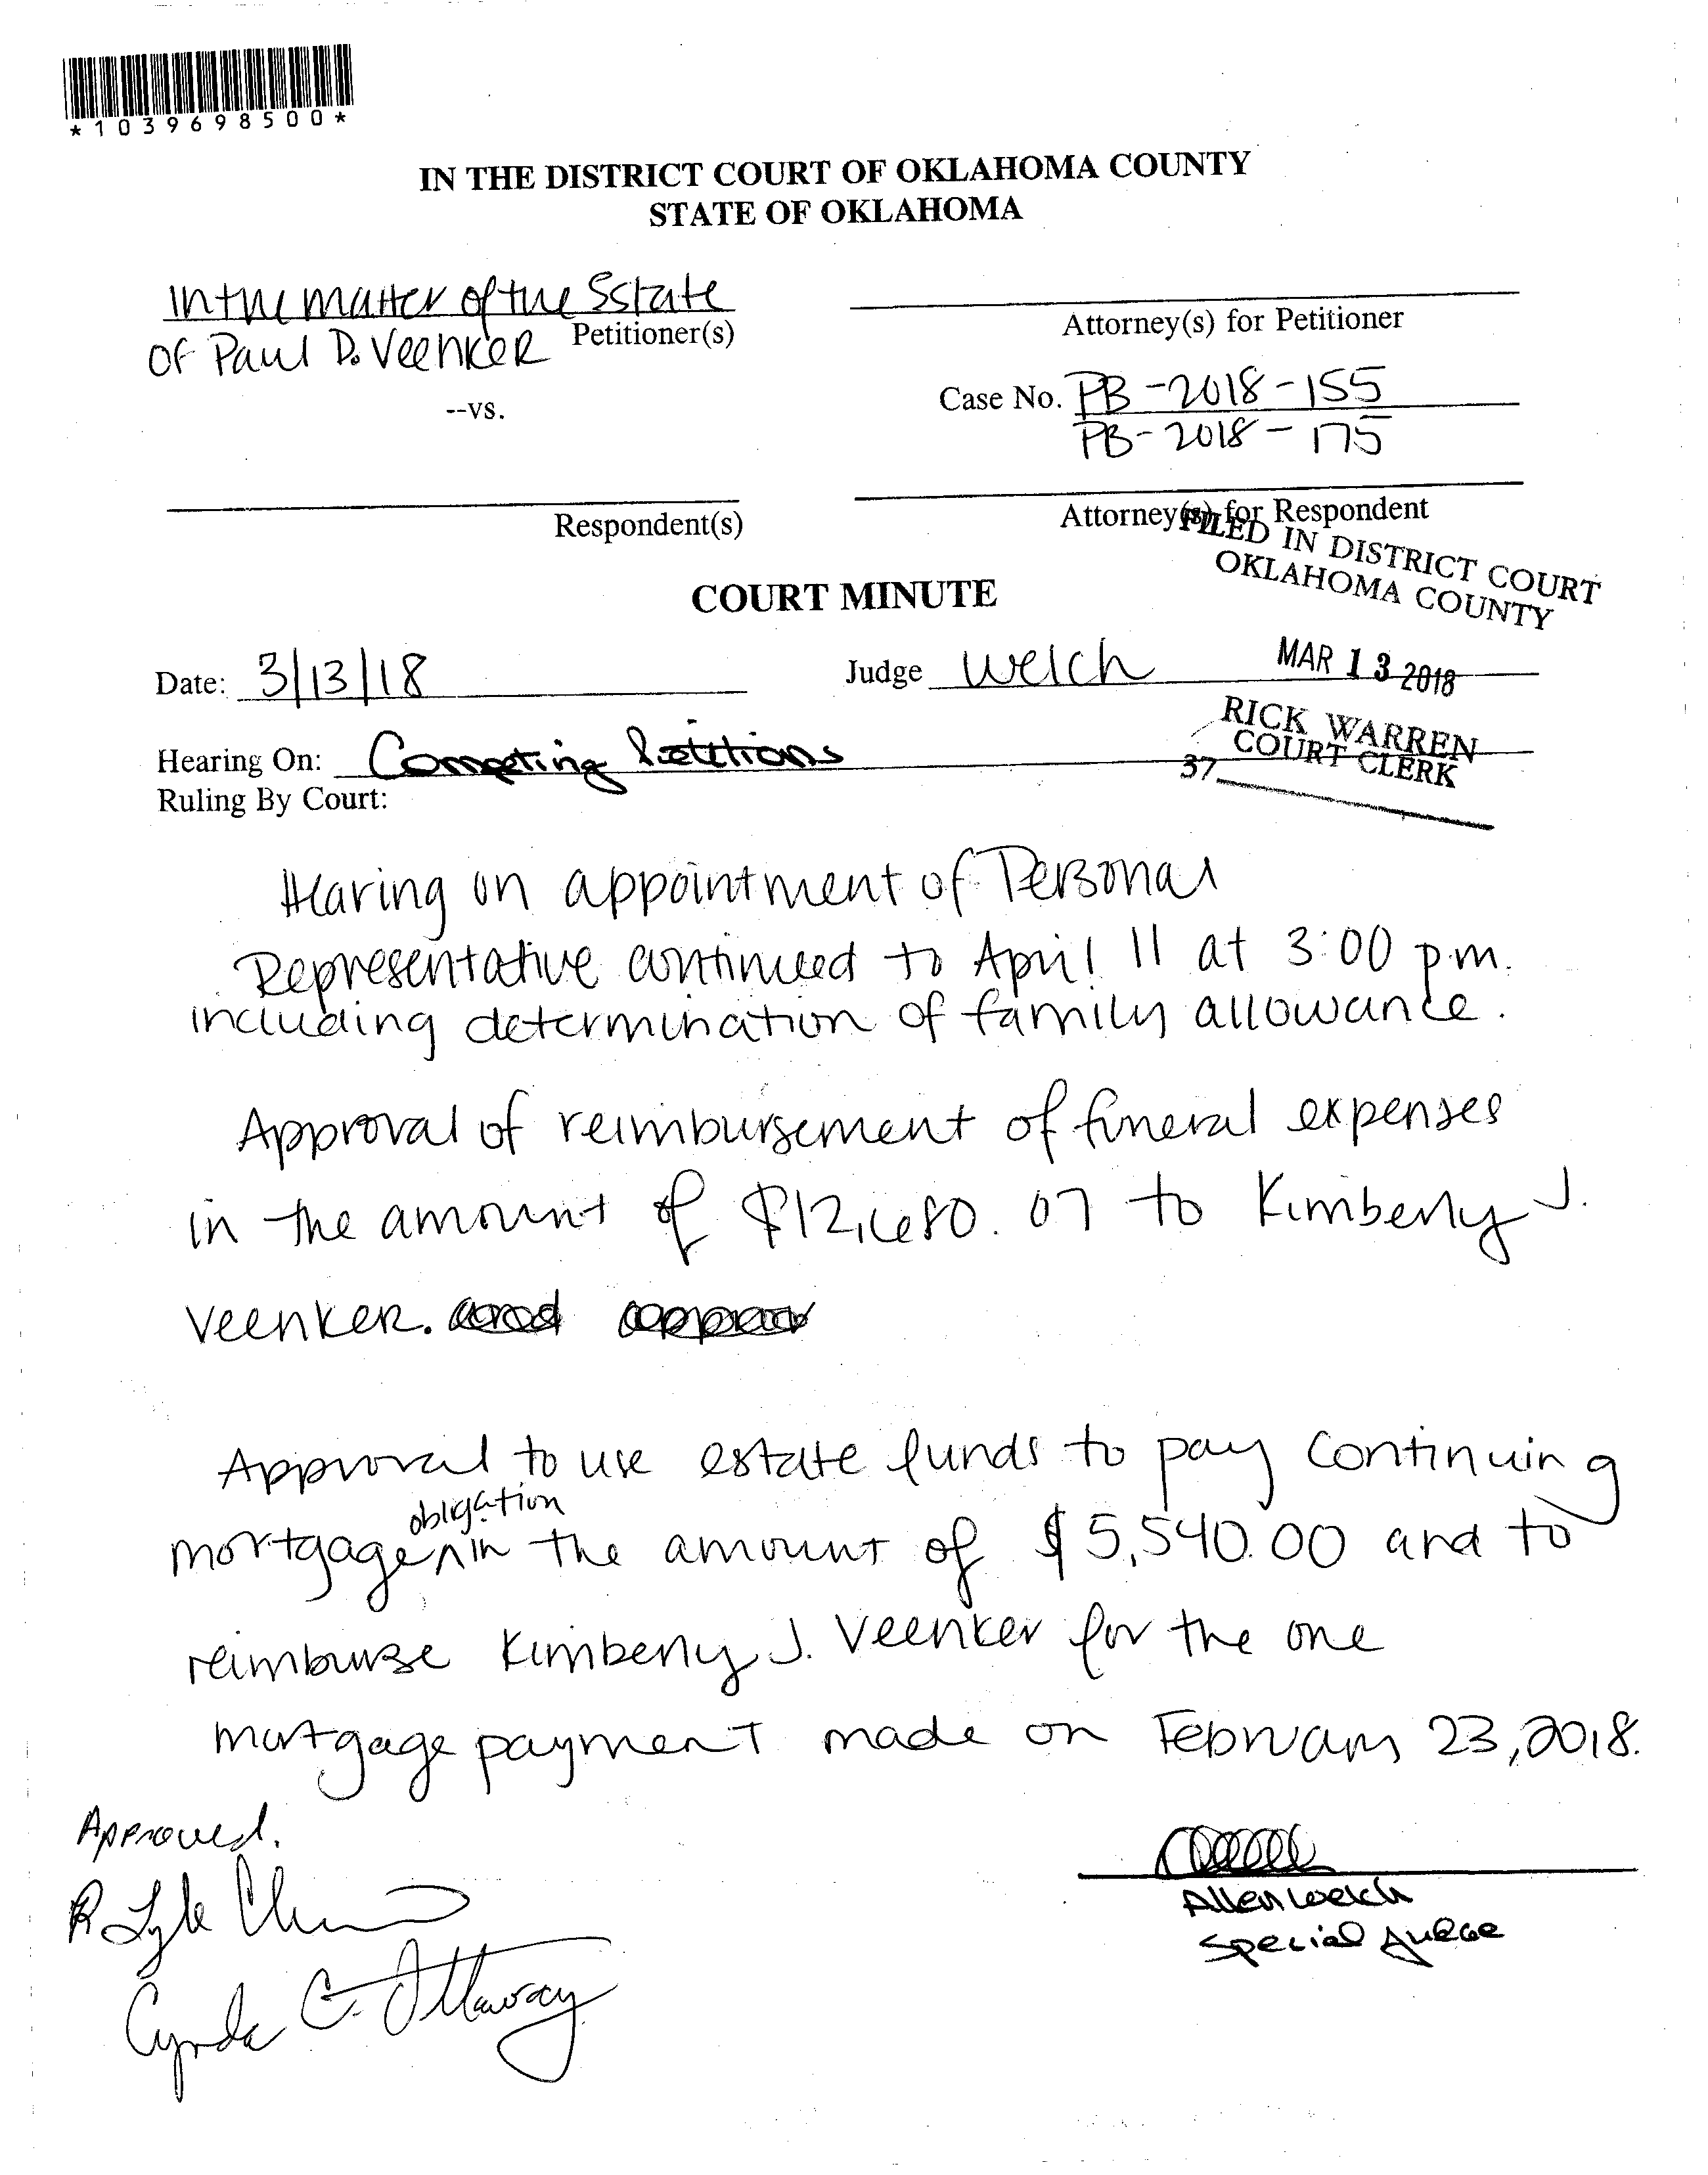 *1039698500*
IN THE DISTRICT COURT OF OKLAHOMA COUNTY
STATE OF OKLAHOMA
In the matter of the Estate
of Paul D. Veenker
Petitioner(s)
Attorney(s) for Petitioner
--vs.
Case No. PB-2018-155
PB-2018-175
Respondent(s)
Attorney(s) for Respondent
FILED IN DISTRICT COURT
OKLAHOMA COUNTY
COURT MINUTE
Date: 3/13/18
Judge Welch
MAR 13 2018
RICK WARREN
COURT CLERK
37
Hearing On: Competing Petitions
Ruling By Court:
Hearing on appointment of Personal
Representative continued to April 11 at 3:00 p.m.
including determination of family allowance.
Approval of reimbursement of funeral expenses
in the amount of $12,680.07 to Kimberly J.
Veenker.
Approval to use estate funds to pay continuing
mortgage obligation in the amount of $5,540.00 and to
reimburse Kimberly J. Veenker for the one
mortgage payment made on February 23, 2018.
Approved.
R Lyle
Cynda C. Ottaway
Allen Welch
Special Judge